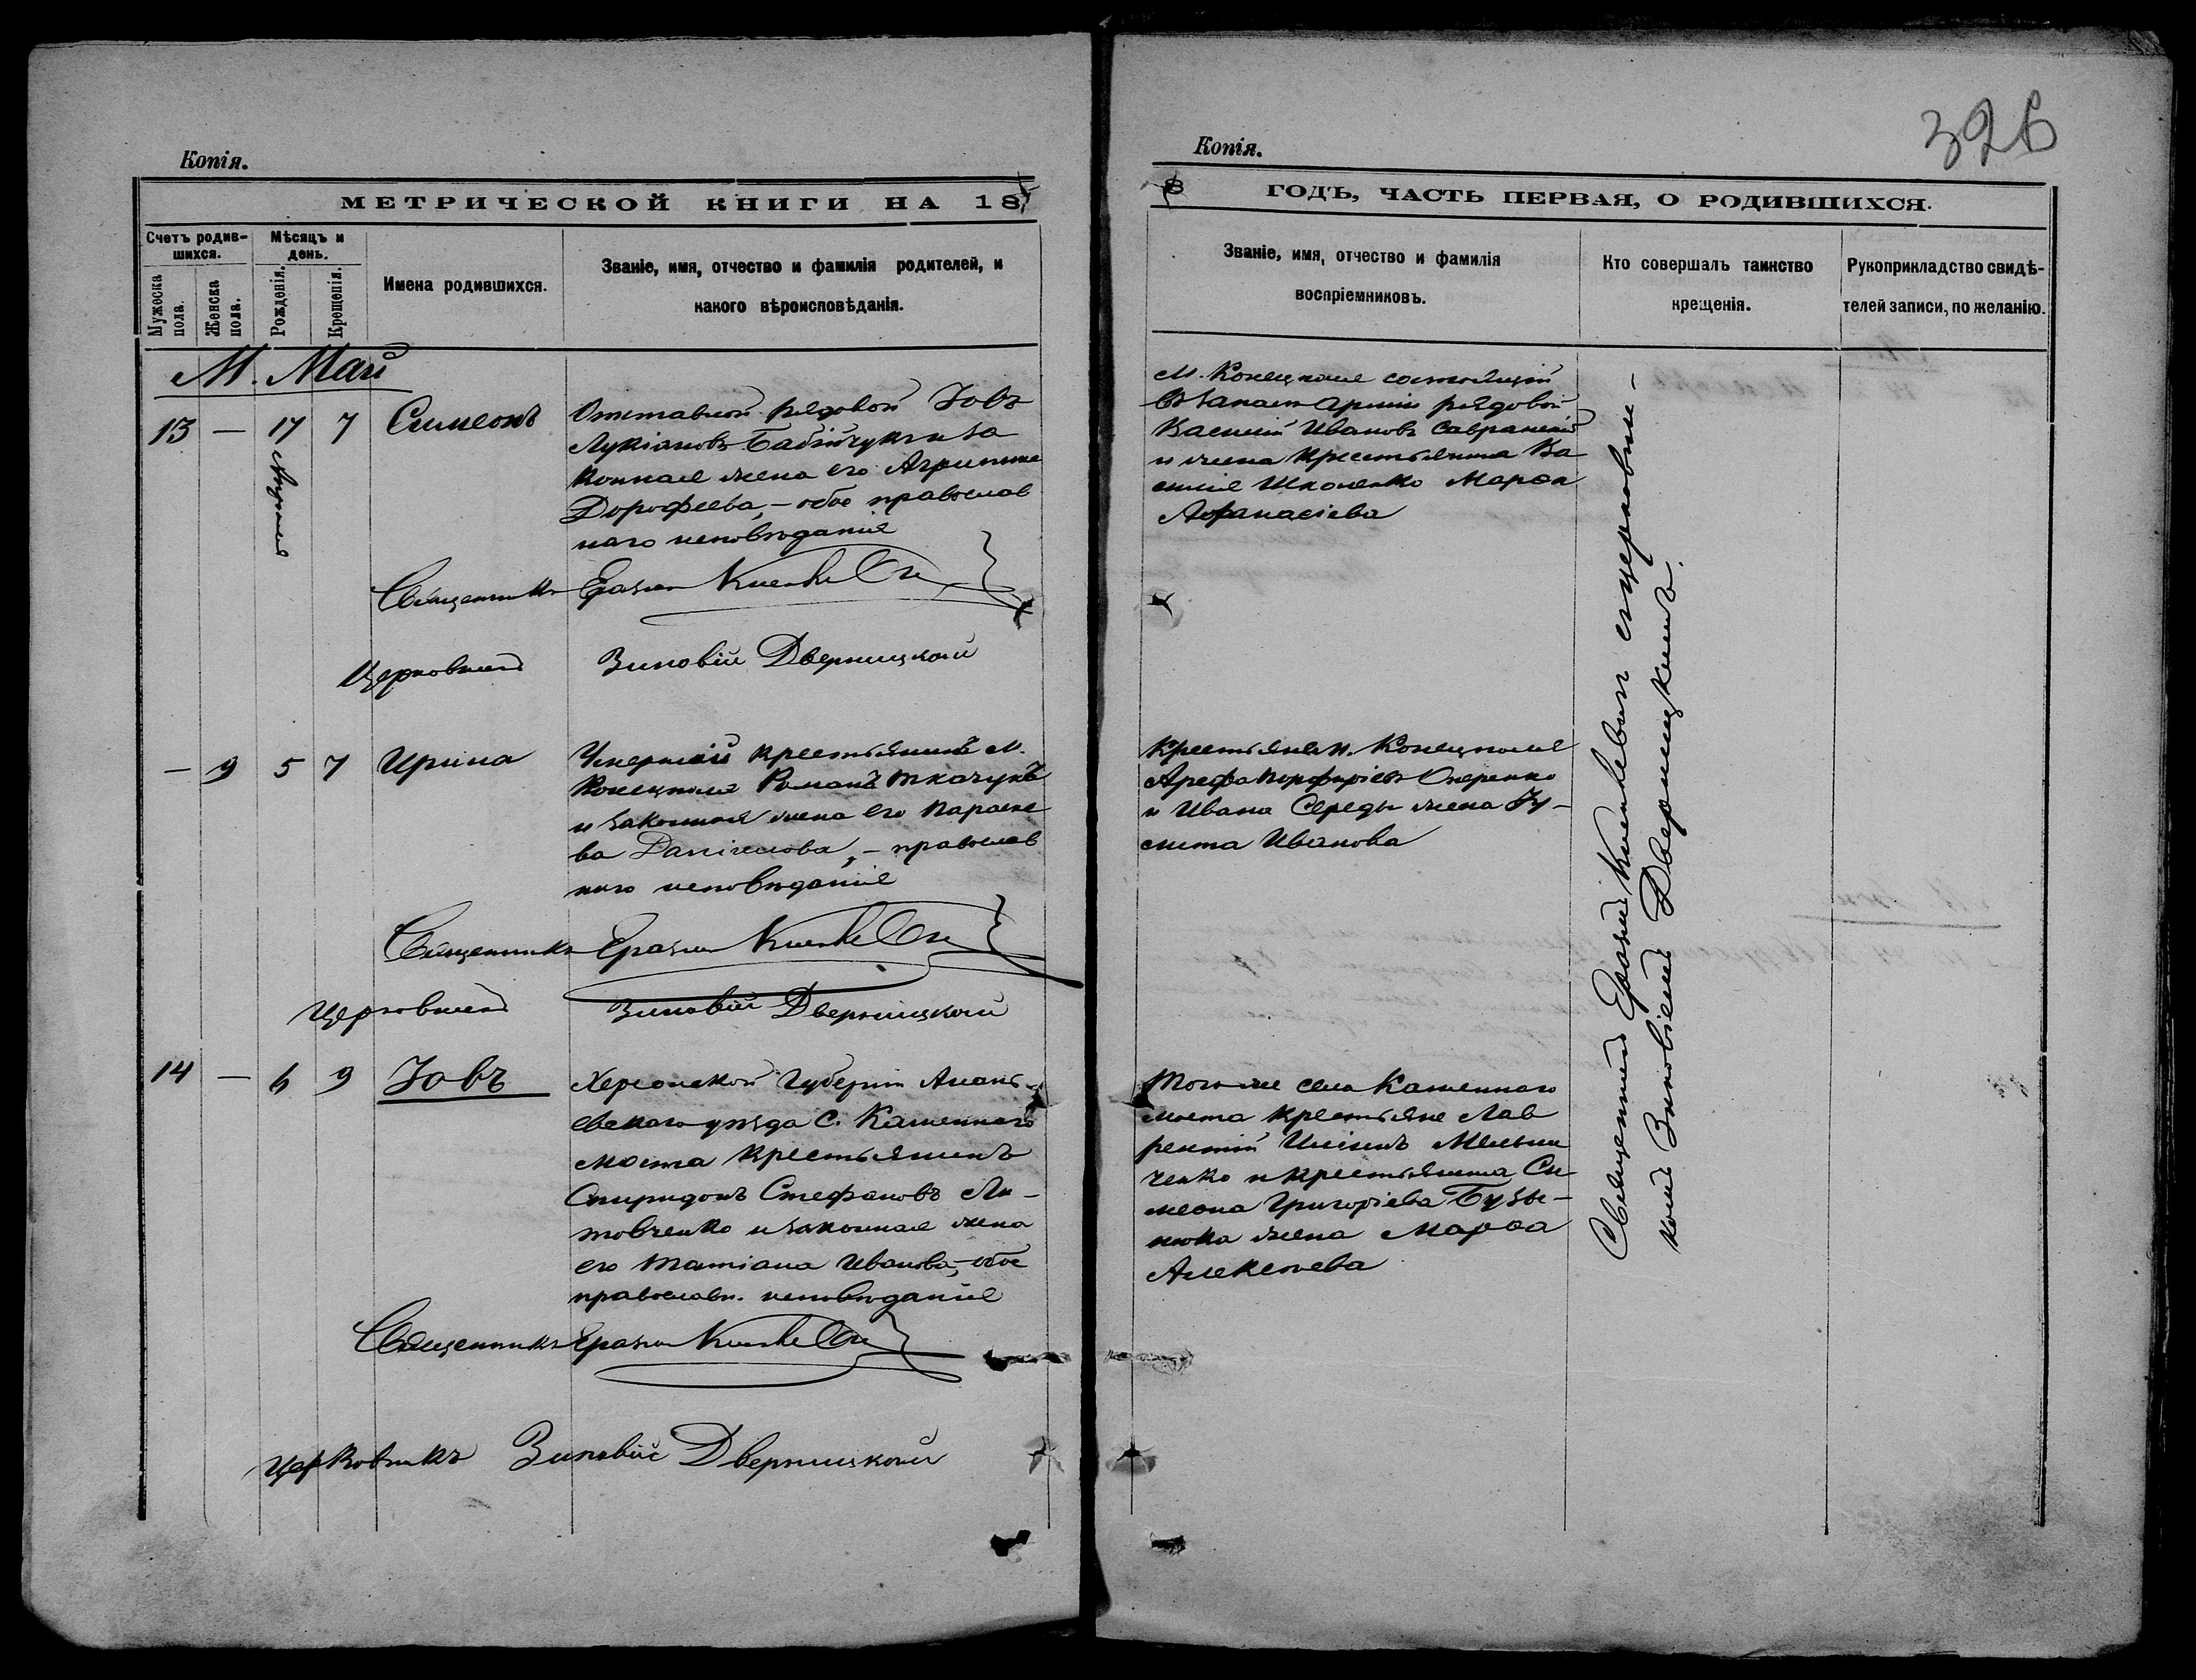 Копія.
МЕТРИЧЕСКОЙ КНИГИ НА 18
Счетъ родив-
шихся.
Мужеска
пола.
Женска
пола.
Мѣсяцъ и
день.
Рожденія.
Крещенія.
Имена родившихся.
Званіе, имя, отчество и фамилія родителей, и
какого вѣроисповѣданія.
М. Май
13 — 17 Апреля 7 Симеонъ
Отставной рядовой Іовъ
Лукіановъ Бабійчукъ и за
конная жена его Агрипина
Дорофеева, – обое православ
наго исповѣданія
Священникъ
Церковникъ Зиновій Дверницкій
— 9 5 7 Ирина
Умершій крестьянинъ м.
Конецполя Романъ Ткачукъ
и законная жена его Параске
ва Даніилова, – православ
наго исповѣданія
Священникъ
Церковникъ Зиновій Дверницкій
14 — 6 9 Іовъ
Херсонской Губерніи Анань
евскаго уѣзда С. Каменнаго
моста крестьянинъ
Спиридонъ Стефановъ Ли-
товченко и законная жена
его Татіана Иванова, – обое
православн. исповѣданія
Священникъ
Церковникъ Зиновій Дверницкій
326
Копія.
8 ГОДЪ, ЧАСТЬ ПЕРВАЯ, О РОДИВШИХСЯ.
Званіе, имя, отчество и фамилія
воспріемниковъ.
Кто совершалъ таинство
крещенія.
Рукоприкладство свидѣ-
телей записи, по желанію.
М. Конецполя состоящій
въ запасѣ арміи рядовой
Василій Ивановъ Савранскій
и жена крестьянина Ва
силія Школенко Марѳа
Аѳанасіева
Крестьяне м. Конецполя
Арефа Порфиріевъ Оперенко
и Ивана Середы жена Іу-
лита Иванова
Того же села Каменнаго
моста крестьяне Лав
рентій Мельни
ченко и крестьянина Си
меона Григоріева Бузы-
нюка жена Марѳа
Алексѣева
Священникъ съ церковни-
комъ Зиновіемъ Дверницкимъ.